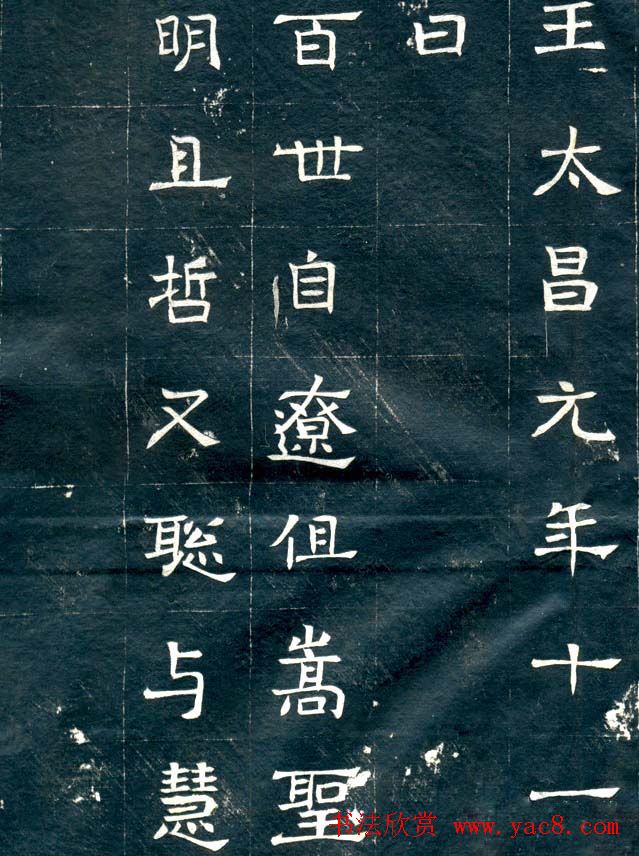 王太昌元年十一
曰
百世自遼伹嵩聖
明且哲又聡与慧
书法欣赏 www.yac8.com